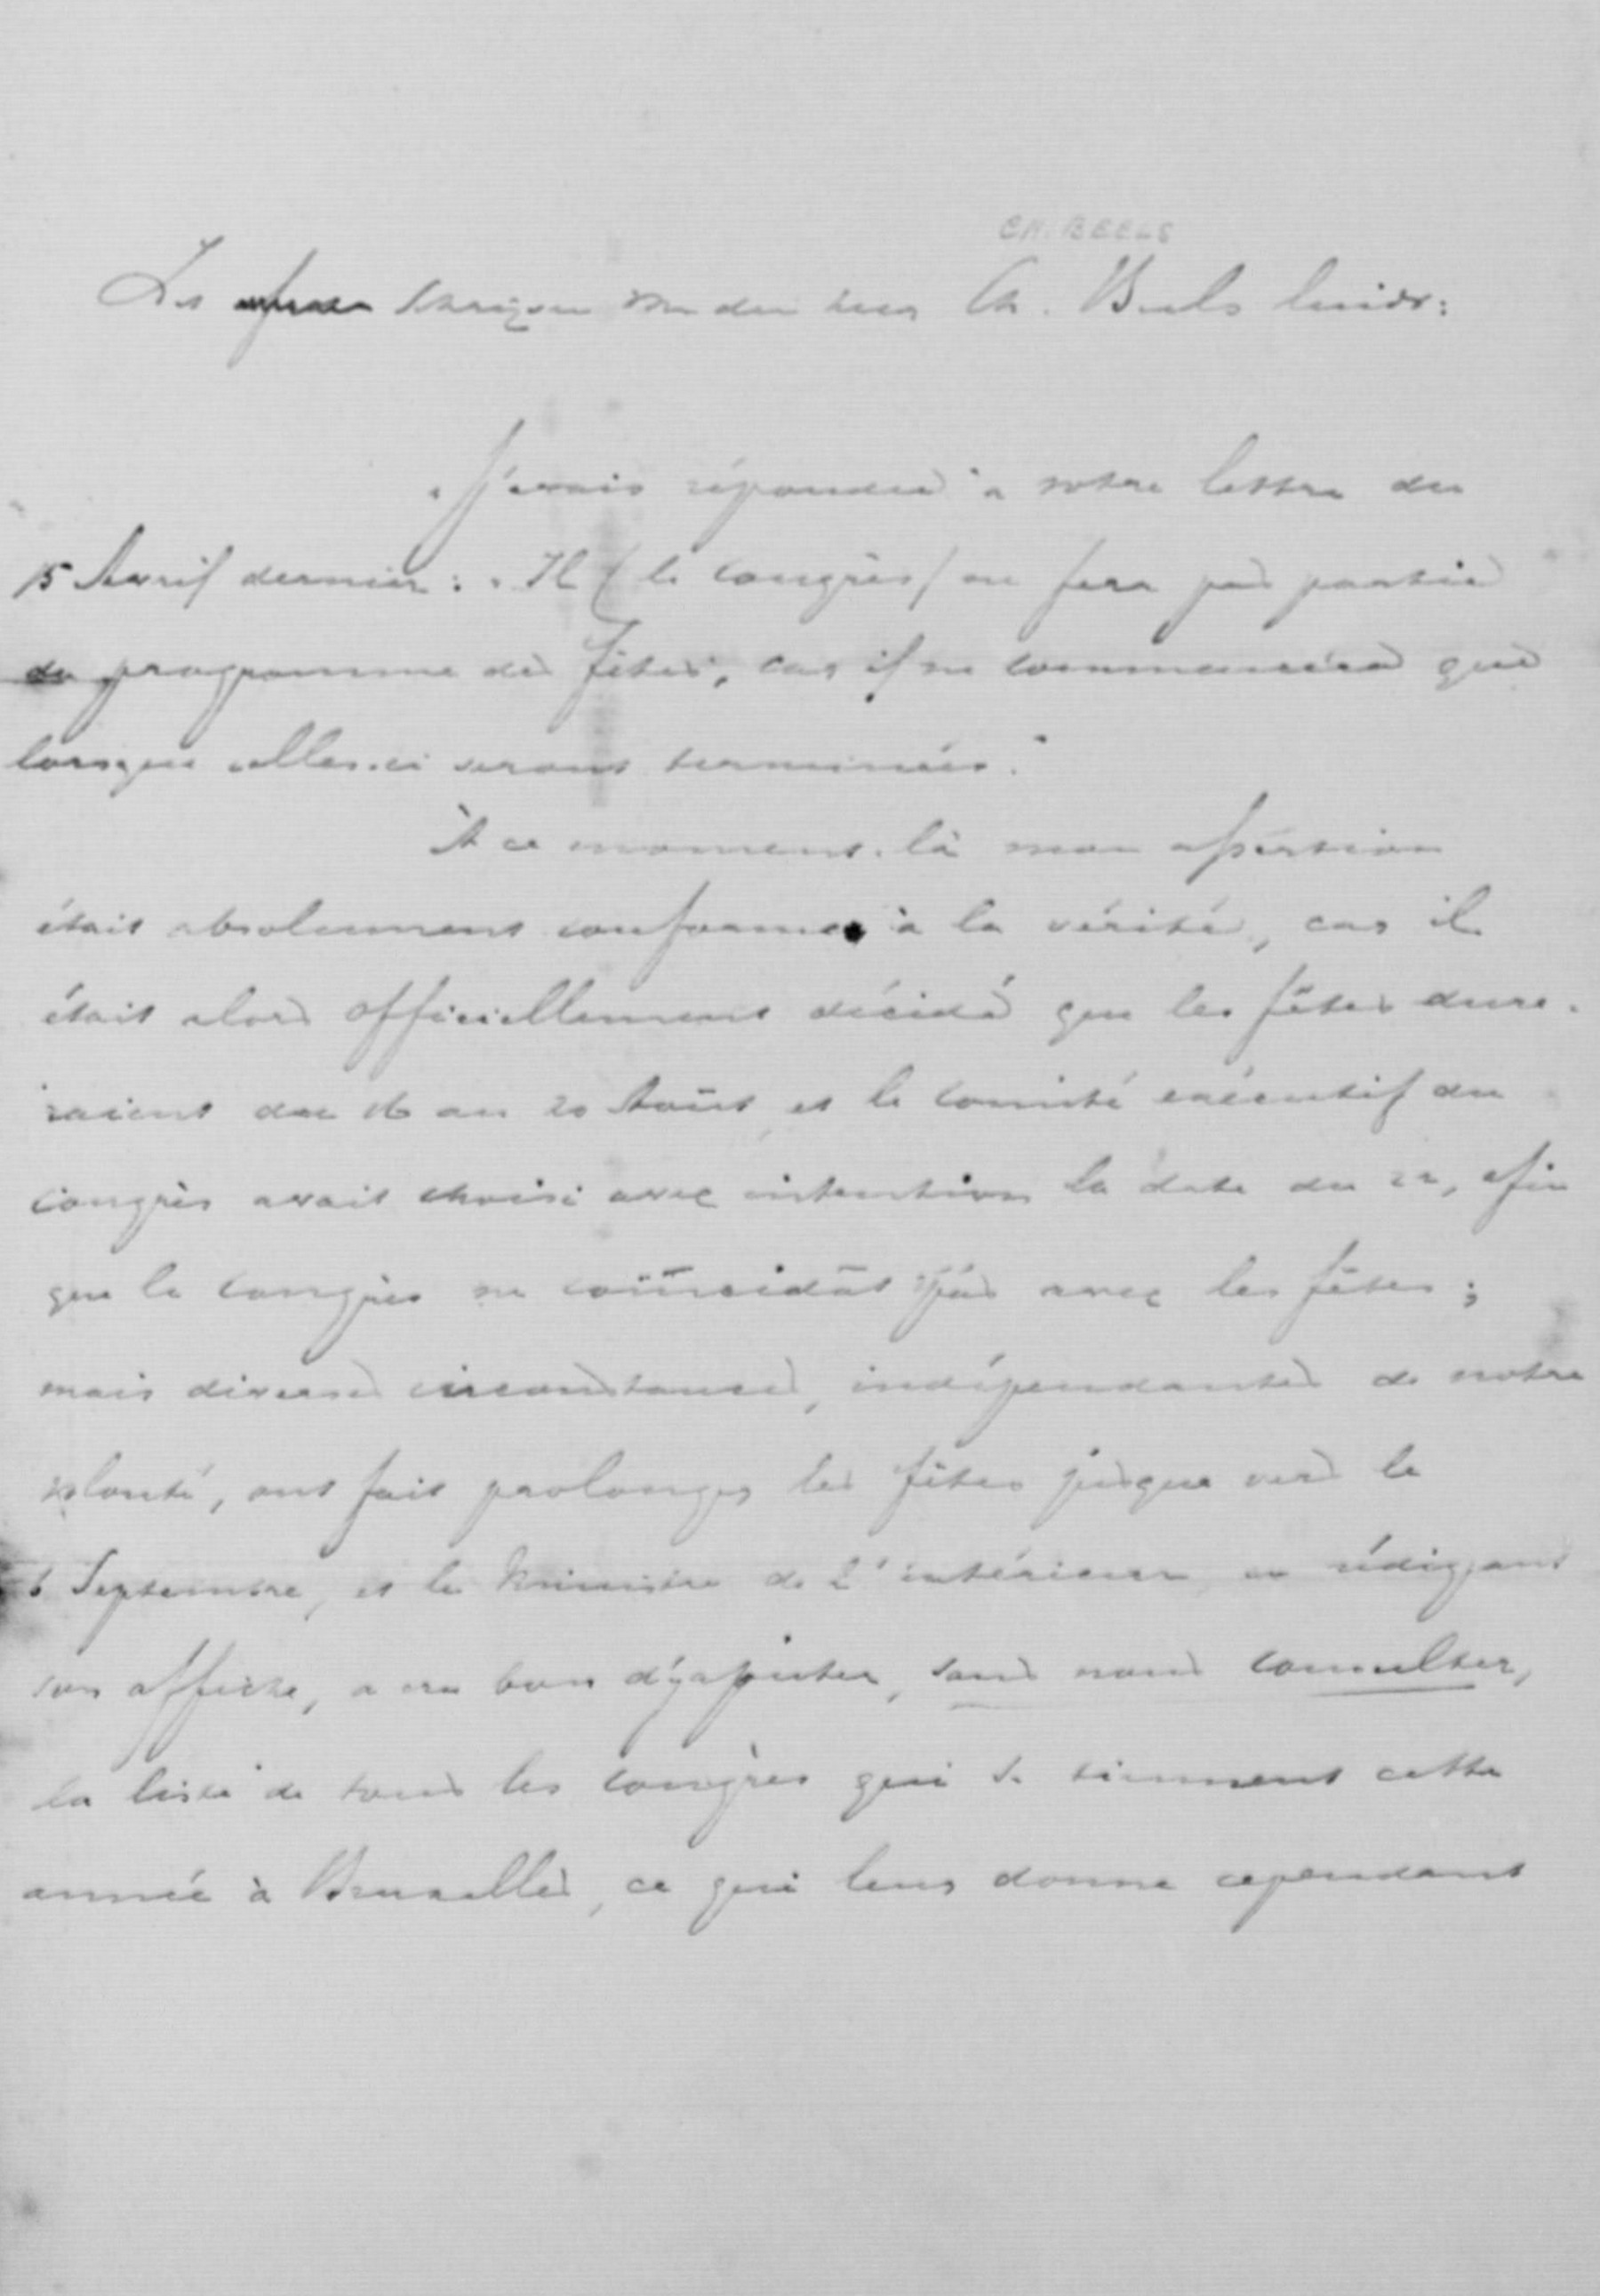 CH. BEELS
Het schrijven van den heer Ch. Buls luidt:
"J'avais répondu à votre lettre du
15 Avril dernier: "Il (le congrès) ne fera pas partie
du programme des fêtes, car il ne commencera que
lorsque celles-ci seront terminées."
À ce moment-là mon assertion
était absolument conforme à la vérité, car il
était alors officiellement décidé que les fêtes dure-
raient du 16 au 20 Août, et le comité exécutif du
congrès avait choisi avec intention la date du 22, afin
que le congrès ne coïncidât pas avec les fêtes;
mais diverses circonstances, indépendantes de notre
volonté, ont fait prolonger les fêtes jusque vers le
6 Septembre, et le Ministre de l'intérieur en rédigeant
son affiche, a cru bon d'y ajouter, sans nous consulter,
la liste de tous les congrès qui se tiennent cette
année à Bruxelles, ce qui leur donne cependant